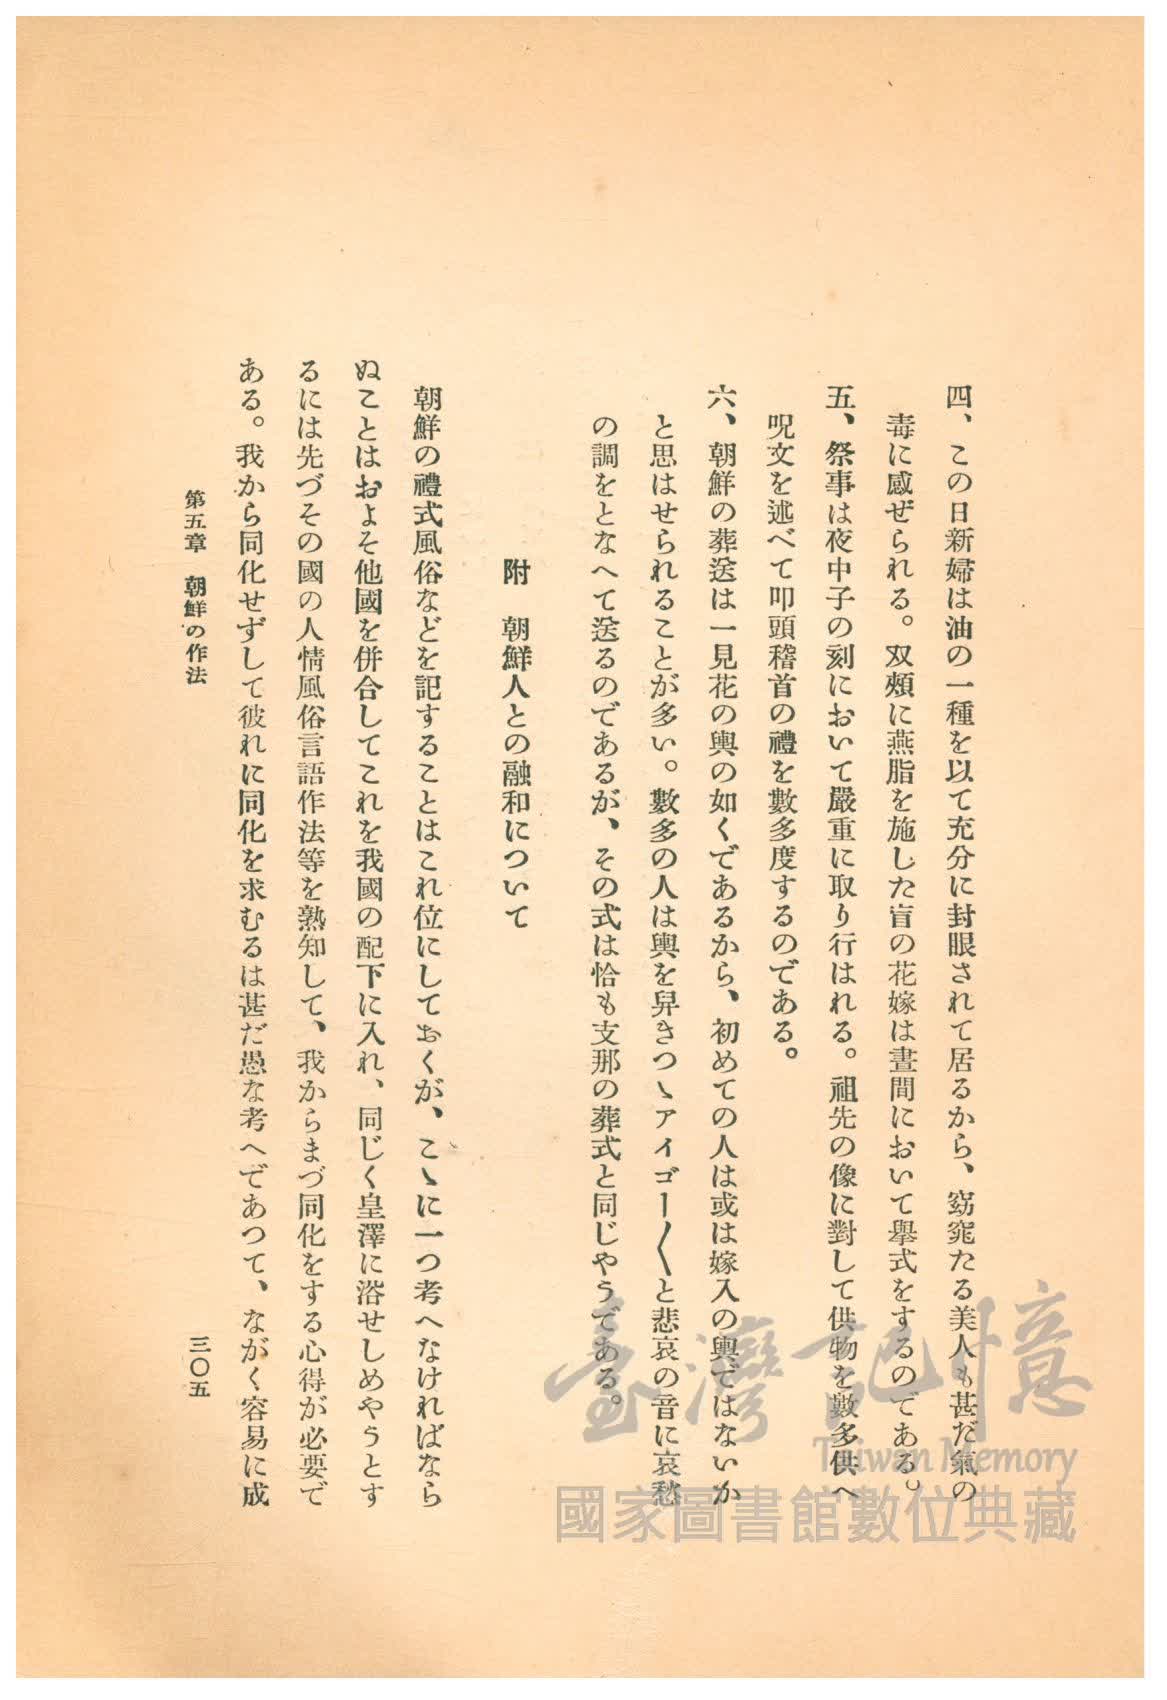 四、この日新婦は油の一種を以て充分に封眼されて居るから、窈窕たる美人も甚だ氣の
毒に感ぜられる。双頰に燕脂を施した盲の花嫁は晝間において擧式をするのである。
五、祭事は夜中子の刻において嚴重に取り行はれる。祖先の像に對して供物を數多供へ
呪文を述べて叩頭稽首の禮を數多度するのである。
六、朝鮮の葬送は一見花の輿の如くであるから、初めての人は或は嫁入の輿ではないか
と思はせられることが多い。數多の人は輿を舁きつゝアイゴー〱と悲哀の音に哀愁
の調をとなへて送るのであるが、その式は恰も支那の葬式と同じやうである。
附　朝鮮人との融和について
朝鮮の禮式風俗などを記することはこれ位にしておくが、こゝに一つ考へなければなら
ぬことはおよそ他國を併合してこれを我國の配下に入れ、同じく皇澤に浴せしめやうとす
るには先づその國の人情風俗言語作法等を熟知して、我からまづ同化をする心得が必要で
ある。我から同化せずして彼れに同化を求むるは甚だ愚な考へであつて、ながく容易に成
第五章　朝鮮の作法
三〇五
臺灣記憶
Taiwan Memory
國家圖書館數位典藏